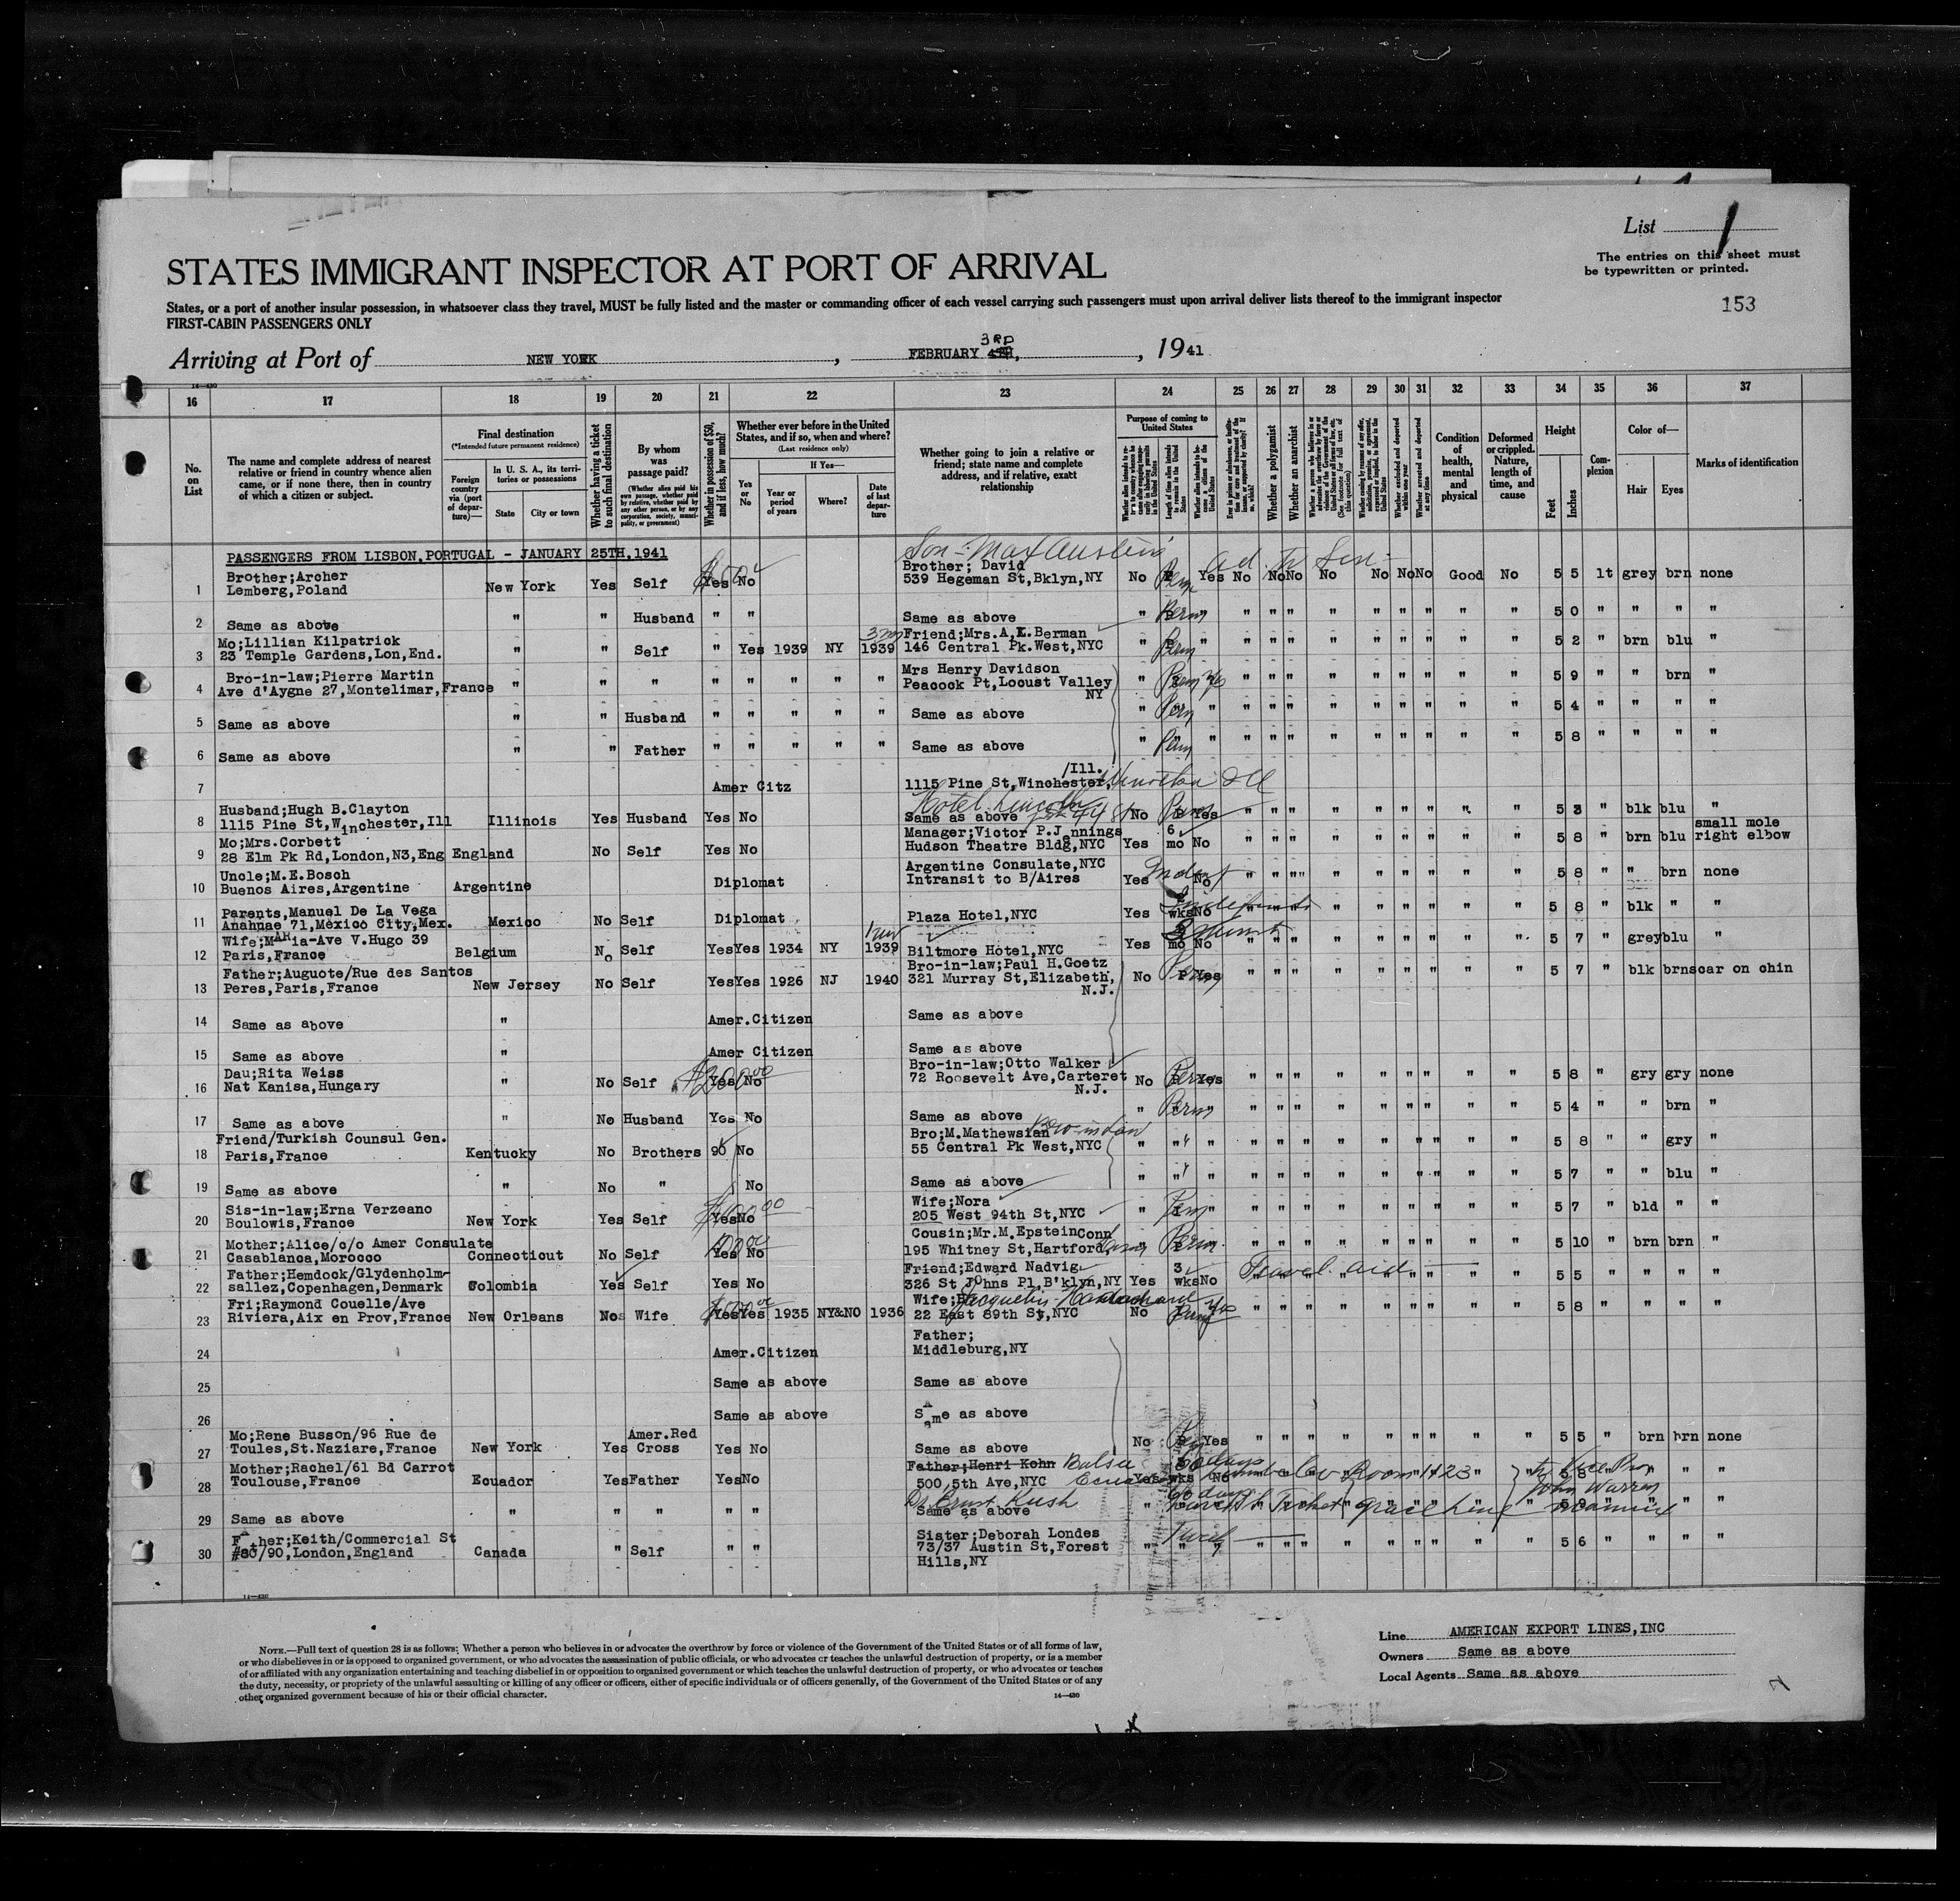 List 1
The entries on this sheet must
be typewritten or printed.
153
STATES IMMIGRANT INSPECTOR AT PORT OF ARRIVAL
States, or a port of another insular possession, in whatsoever class they travel, MUST be fully listed and the master or commanding officer of each vessel carrying such passengers must upon arrival deliver lists thereof to the immigrant inspector
FIRST-CABIN PASSENGERS ONLY
Arriving at Port of NEW YORK, FEBRUARY 4TH, 3RD, 1941
14—430
16 17 18 19 20 21 22 23 24 25 26 27 28 29 30 31 32 33 34 35 36 37
No. on List
The name and complete address of nearest relative or friend in country whence alien came, or if none there, then in country of which a citizen or subject.
Final destination
(*Intended future permanent residence)
Foreign country via (port of departure)—
In U. S. A., its territories or possessions
State
City or town
Whether having a ticket to such final destination
By whom was passage paid?
(Whether alien paid his own passage, whether paid by relative, whether paid by any other person, or by any corporation, society, municipality, or government)
Whether in possession of $50, and if less, how much?
Whether ever before in the United States, and if so, when and where?
(Last residence only)
Yes or No
If Yes—
Year or period of years
Where?
Date of last departure
Whether going to join a relative or friend; state name and complete address, and if relative, exact relationship
Purpose of coming to United States
Length of time alien intends to remain in the United States
Whether a polygamist
Whether an anarchist
Condition of health, mental and physical
Deformed or crippled. Nature, length of time, and cause
Height
Feet
Inches
Complexion
Color of—
Hair
Eyes
Marks of identification
PASSENGERS FROM LISBON, PORTUGAL - JANUARY 25TH, 1941
Son - Max Austein
1 Brother;Archer Brother; David
Lemberg,Poland New York Yes Self Yes No 539 Hegeman St,Bklyn,NY No Perm Yes No No No No No No No Good No 5 5 lt grey brn none
2 Same as above " " Husband " " Same as above " Perm " " " " " " " " " " 5 0 " " " "
Mo;Lillian Kilpatrick Friend;Mrs.A.K.Berman
3 23 Temple Gardens,Lon,End. " " Self " Yes 1939 NY 1939 146 Central Pk.West,NYC " Perm " " " " " " " " " " 5 2 " brn blu "
Bro-in-law;Pierre Martin Mrs Henry Davidson
4 Ave d'Aygne 27,Montelimar,France " " " " " " " " Peacock Pt,Locust Valley NY " Perm " " " " " " " " " 5 9 " " brn "
5 Same as above " " Husband " " " " " Same as above " Perm " " " " " " " " " " 5 4 " " " "
6 Same as above " " Father " " " " " Same as above " Perm " " " " " " " " " " 5 8 " " " "
7 Amer Citz 1115 Pine St,Winchester,/Ill.
Husband;Hugh B.Clayton Hotel Lincoln
8 1115 Pine St,Winchester,Ill Illinois Yes Husband Yes No Same as above No Perm Yes " " " " " " " " " 5 3 " blk blu "
Mo;Mrs.Corbett Manager;Victor P.Jennings small mole
9 28 Elm Pk Rd,London,N3,Eng England No Self Yes No Hudson Theatre Bldg,NYC Yes 6 mo No " " " " " " " " " 5 8 " brn blu right elbow
Uncle;M.E.Bosch Argentine Consulate,NYC
10 Buenos Aires,Argentine Argentine Diplomat Intransit to B/Aires Yes No " " " " " " " " " 5 8 " " brn none
Parents,Manuel De La Vega
11 Anahnae 71,Mexico City,Mex. Mexico No Self Diplomat Plaza Hotel,NYC Yes wks No " " " " " " " " " 5 8 " blk " "
Wife;Maria-Ave V.Hugo 39
12 Paris,France Belgium No Self Yes Yes 1934 NY 1939 Biltmore Hotel,NYC Yes mo No " " " " " " " " " 5 7 " grey blu "
Father;Auguote/Rue des Santos Bro-in-law;Paul H.Goetz
13 Peres,Paris,France New Jersey No Self Yes Yes 1926 NJ 1940 321 Murray St,Elizabeth, N.J. No Perm Yes " " " " " " " " " 5 7 " blk brn scar on chin
14 Same as above " Amer.Citizen Same as above
15 Same as above " Amer Citizen Same as above
Dau;Rita Weiss Bro-in-law;Otto Walker
16 Nat Kanisa,Hungary " No Self $200.00 Yes No 72 Roosevelt Ave,Carteret N.J. No Perm Yes " " " " " " " " " 5 8 " gry gry none
17 Same as above " No Husband Yes No Same as above " Perm " " " " " " " " " " 5 4 " " brn "
Friend/Turkish Counsul Gen. Bro;M.Mathewsian
18 Paris,France Kentucky No Brothers 90 No 55 Central Pk West,NYC " " " " " " " " " " " " 5 8 " " gry "
19 Same as above " No " No Same as above " " " " " " " " " " " " 5 7 " " blu "
Sis-in-law;Erna Verzeano Wife;Nora
20 Boulowis,France New York Yes Self Yes No 205 West 94th St,NYC " Perm " " " " " " " " " " 5 7 " bld " "
Mother;Alice/c/o Amer Consulate Cousin;Mr.M.Epstein Conn
21 Casablanca,Morocco Connecticut No Self Yes No 195 Whitney St,Hartford, " Perm " " " " " " " " " 5 10 " brn brn "
Father;Hemdock/Glydenholm- Friend;Edward Nadvig
22 sallez,Copenhagen,Denmark Colombia Yes Self Yes No 326 St Johns Pl,B'klyn,NY Yes 3 wks No Travel aid " " " " " " 5 5 " " " "
Fri;Raymond Couelle/Ave Wife; Jacquelin
23 Riviera,Aix en Prov,France New Orleans No Wife Yes Yes 1935 NY&NO 1936 22 East 89th St,NYC No Perm " " " " " " " " " 5 8 " " " "
24 Amer.Citizen Father; Middleburg,NY
25 Same as above Same as above
26 Same as above Same as above
Mo;Rene Busson/96 Rue de Amer.Red
27 Toules,St.Naziare,France New York Yes Cross Yes No Same as above No Perm Yes " " " " " " " " " 5 5 " brn brn none
Mother;Rachel/61 Bd Carrot Father;Henri Kohn 60 days
28 Toulouse,France Ecuador Yes Father Yes No 500,5th Ave,NYC Yes wks No Room 1423 5 8 " " " "
29 Same as above " " " " " Same as above 60 days Ticket Grace Line John Warren " " " "
Father;Keith/Commercial St Sister;Deborah Londes
30 #80/90,London,England Canada " Self " " 73/37 Austin St,Forest Hills,NY " " " " " " " " " " " 5 6 " " " "
14—430
NOTE.—Full text of question 28 is as follows: Whether a person who believes in or advocates the overthrow by force or violence of the Government of the United States or of all forms of law,
or who disbelieves in or is opposed to organized government, or who advocates the assassination of public officials, or who advocates or teaches the unlawful destruction of property, or is a member
of or affiliated with any organization entertaining and teaching disbelief in or opposition to organized government or which teaches the unlawful destruction of property, or who advocates or teaches
the duty, necessity, or propriety of the unlawful assaulting or killing of any officer or officers, either of specific individuals or of officers generally, of the Government of the United States or of any
other organized government because of his or their official character.
14—430
Line AMERICAN EXPORT LINES,INC
Owners Same as above
Local Agents Same as above